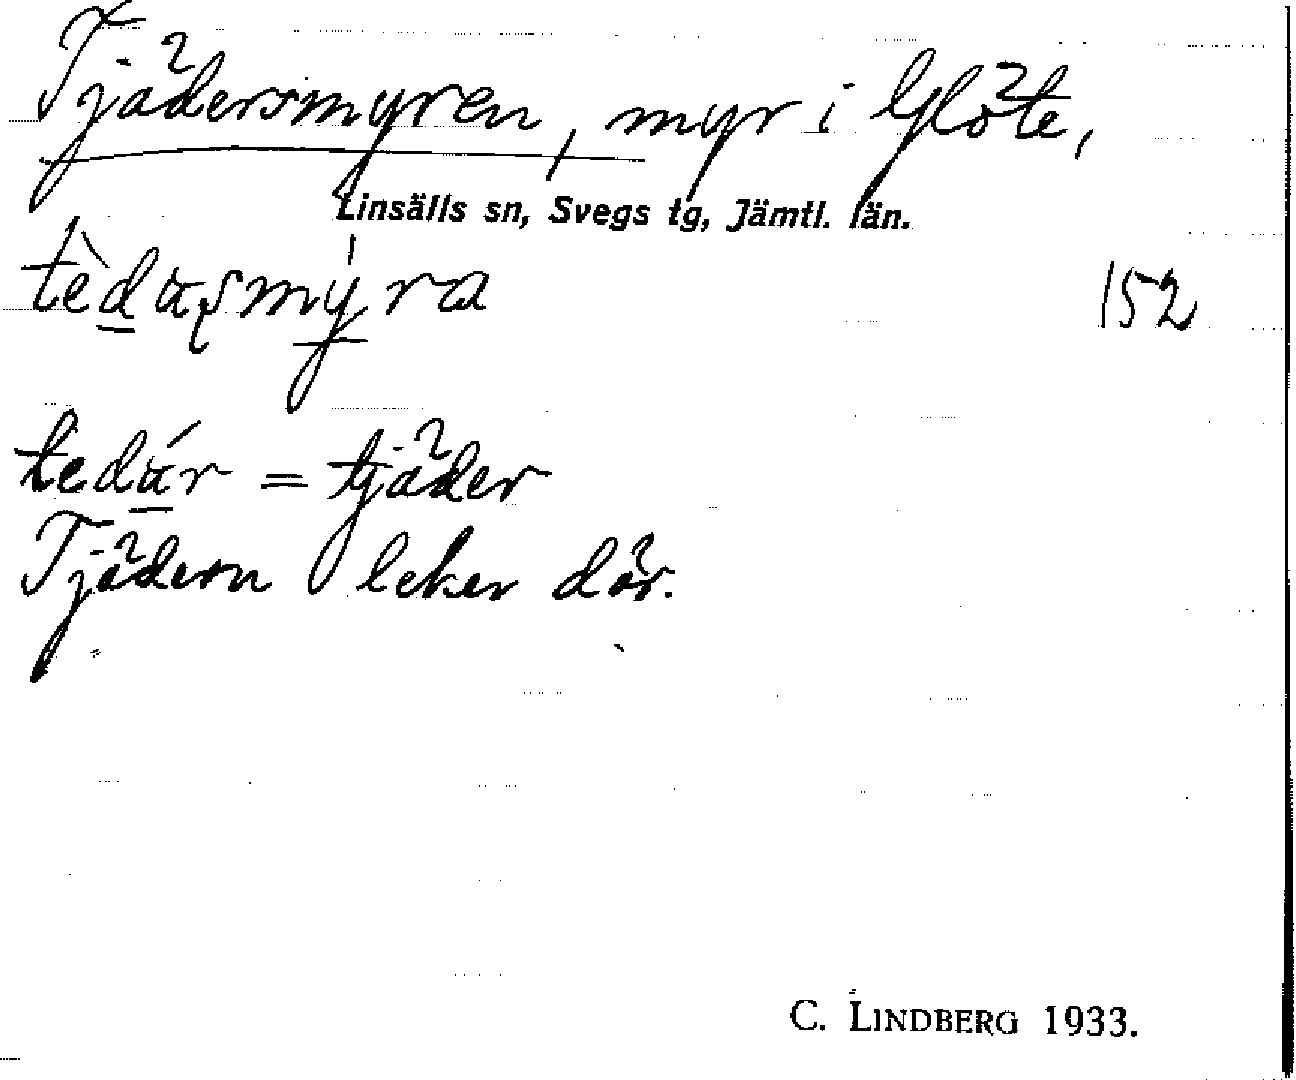 Tjädersmyren, myr i Glöte,
Linsälls sn, Svegs tg, Jämtl. län.
152
tedár = tjäder
Tjädern leker där.
C. LINDBERG 1933.